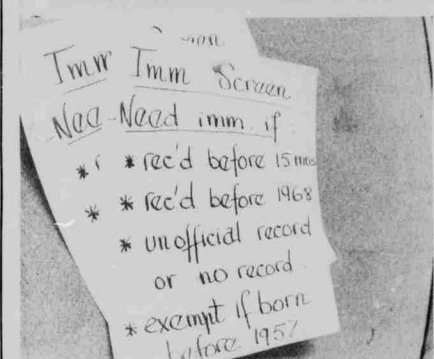 Imm
Nea
*
*
Imm Screen
Need imm. if
* rec'd before 15 mos
* rec'd before 1968
* unofficial record
or no record
* exempt if born
before 1957